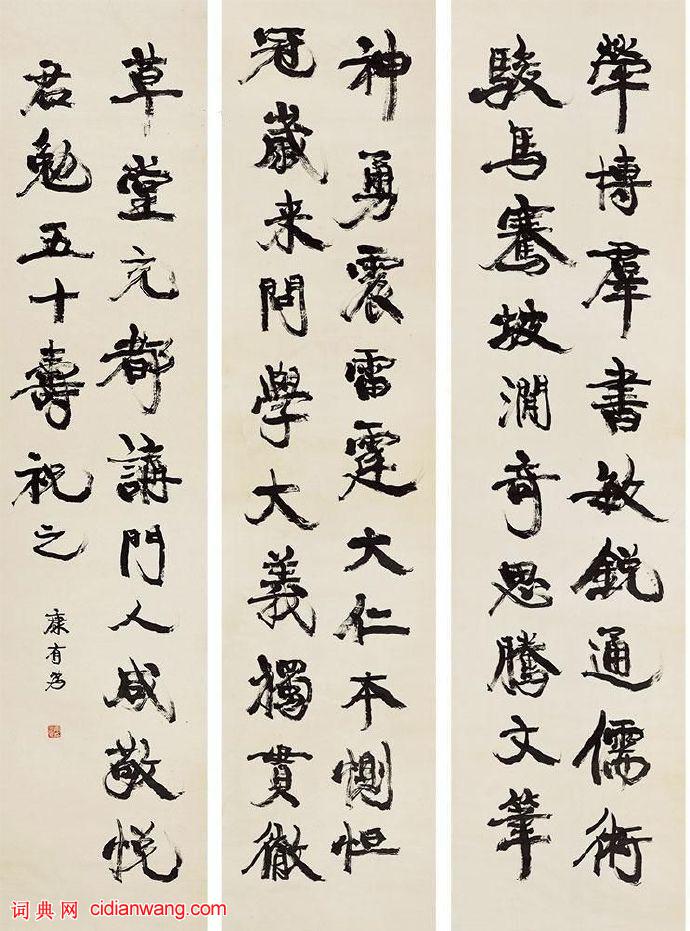 犖博羣書敏鋭通儒術
駿馬騫坡澗奇思騰文筆
神勇震雷霆大仁本惻怛
冠歲来問學大義獨貫徹
草堂充都講門人咸敬悦
君勉五十壽祝之
康有為
词典网 cidianwang.com